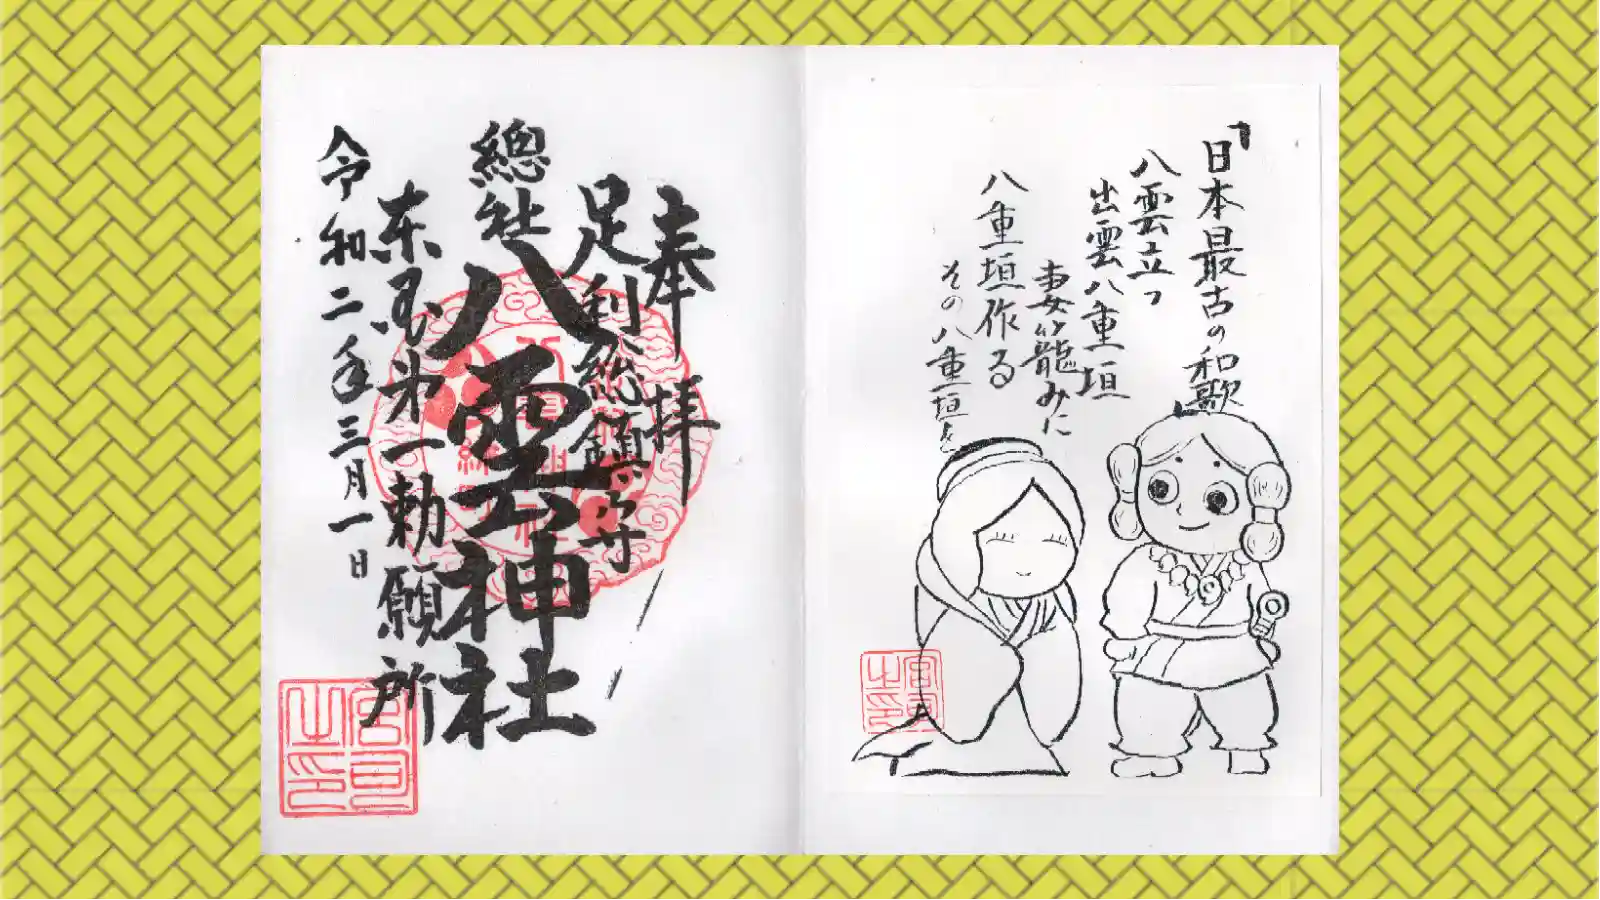 「日本最古の和歌
八雲立つ
出雲八重垣
妻籠みに
八重垣作る
その八重垣を
奉拝
足利総鎮守
總社
八雲神社
東国第一勅願所
令和二年三月一日
宮司之印
宮司之印